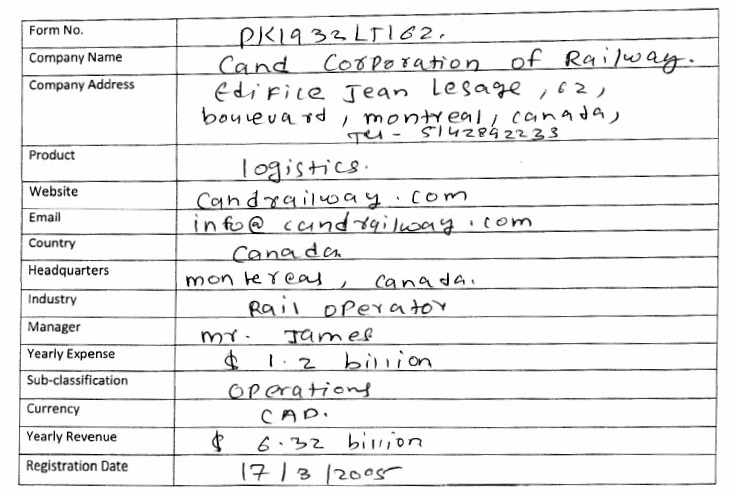 Form No. PK1932LT162.
Company Name Cand Corporation of Railway.
Company Address Edifice Jean Lesage, 62,
bouevard, montreal, canada,
Tel - 5142892233
Product logistics.
Website Candrailway.com
Email info@candrailway.com
Country Canada
Headquarters montereal, canada.
Industry Rail operator
Manager mr. James
Yearly Expense $ 1.2 billion
Sub-classification operations
Currency CAD.
Yearly Revenue $ 6.32 billion
Registration Date 17/3/2005